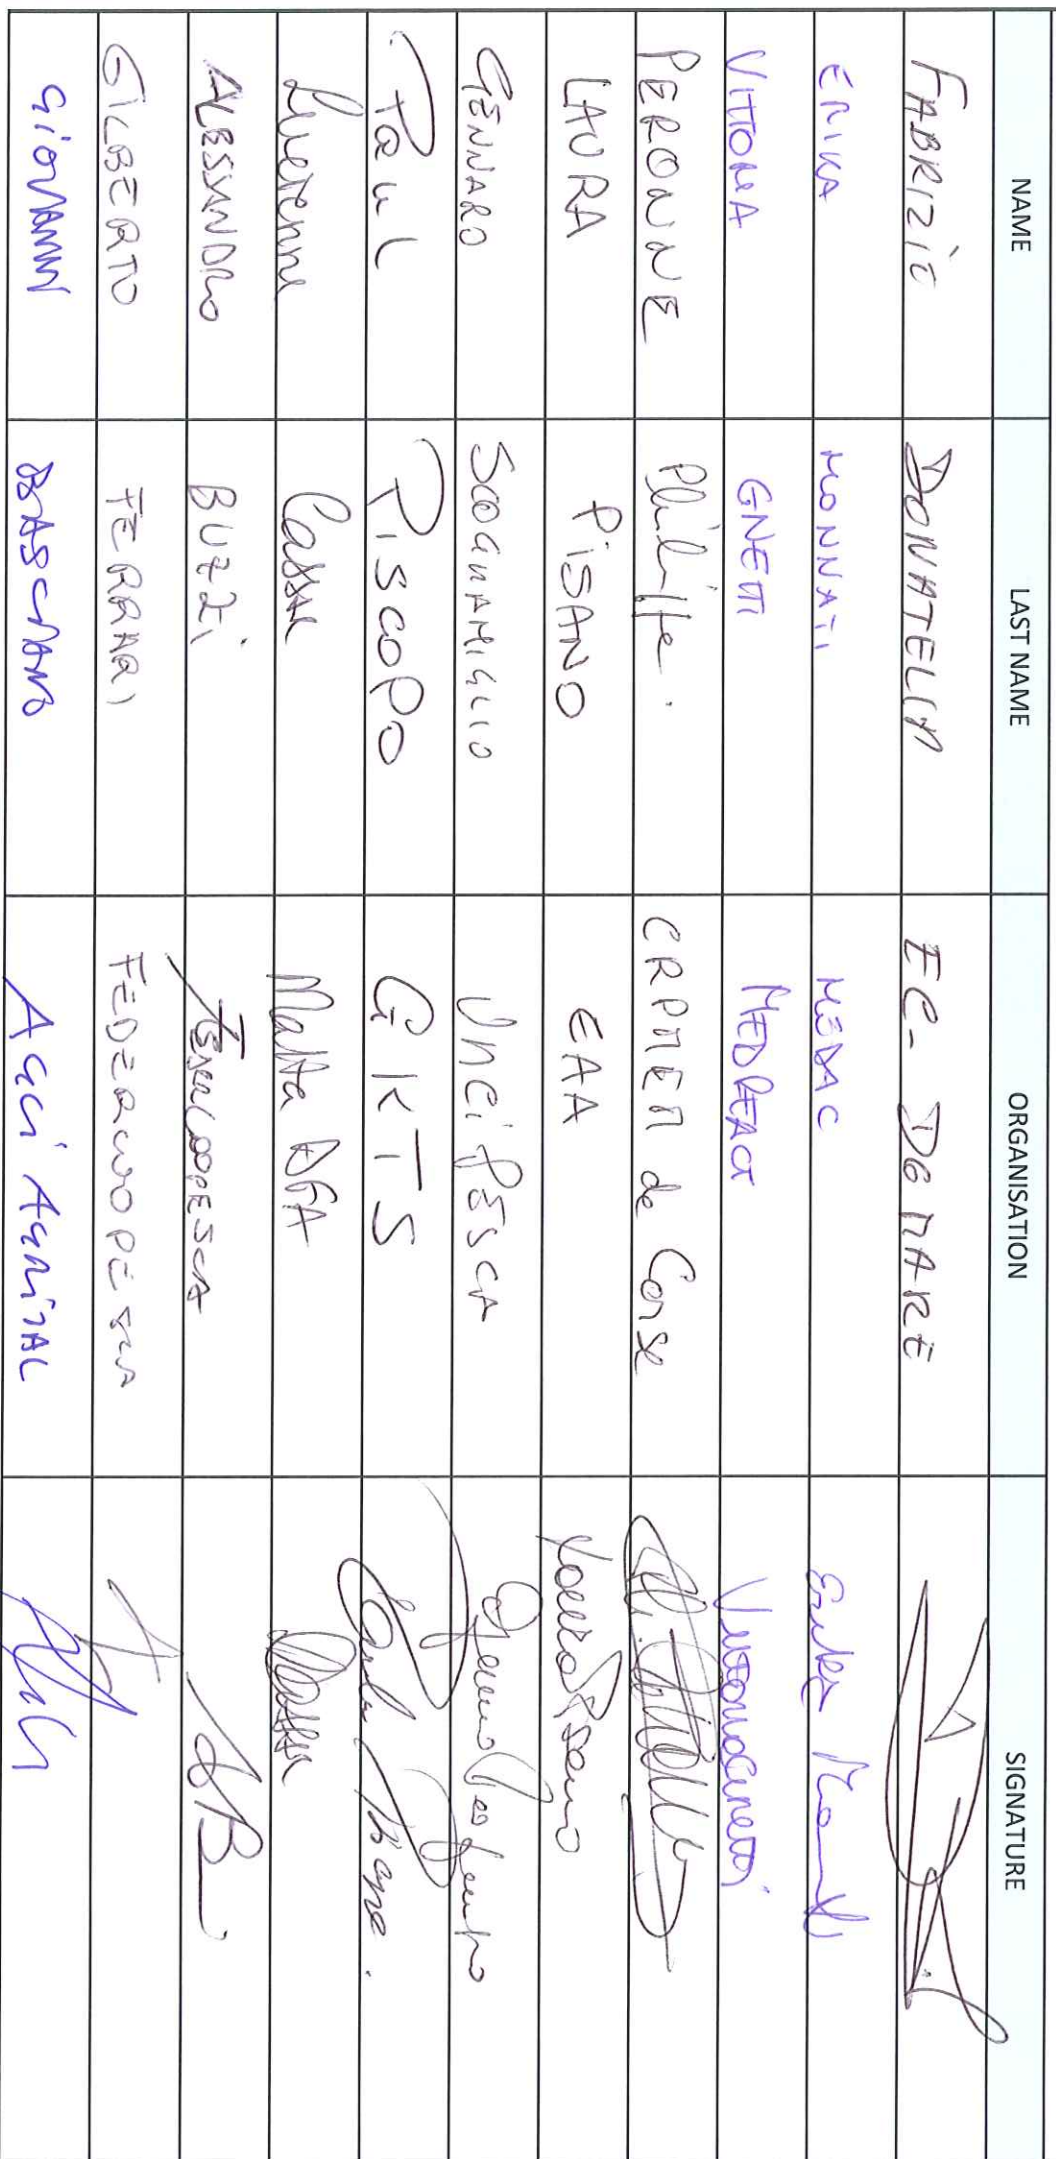 NAME LAST NAME ORGANISATION SIGNATURE
FABRIZIO DONATELLA EC- DG MARE
ERIKA MONNATI MEDAC Erika Monnati
VITTORIA GNETTI MEDREACT Vittoria Gnetti
PERONNE Philippe. CRPMEM de Corse
LAURA PISANO EAA Laura Pisano
GENNARO SCOGNAMIGLIO UNCI PESCA
Paul PISCOPO GKTS
Lucienne Cassar Malta DFA
ALESSANDRO BUZZI
GILBERTO FERRARI FEDERCOOPESCA
GIOVANNI BASCIANO AGCI AGRITAL